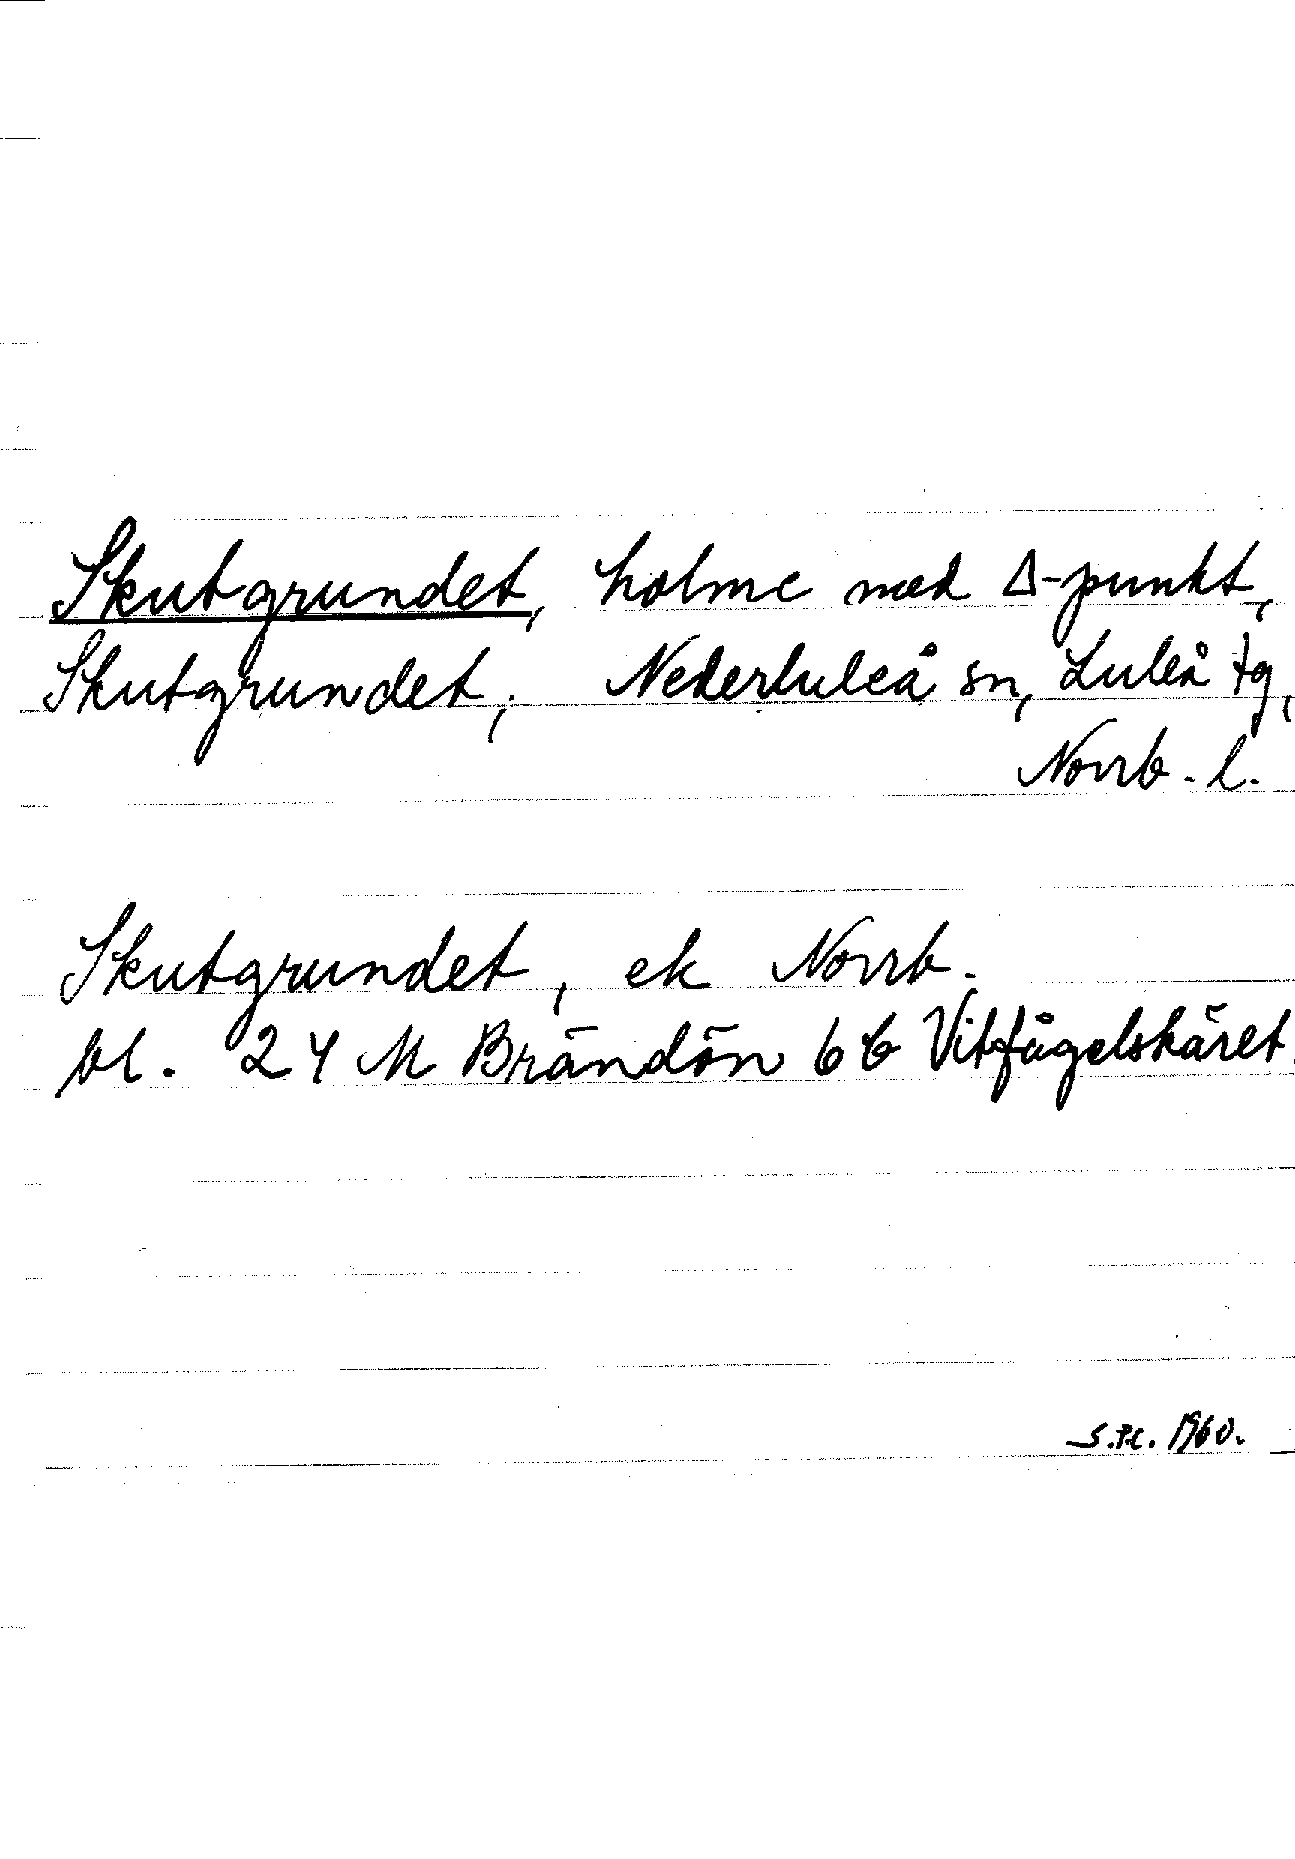 Skutgrundet, holme med Δ-punkt,
Skutgrundet, Nederluleå sn, Luleå tg,
Norrb. l.
Skutgrundet, ek Norrb.
bl. 24 M Brändön 6b Vitfågelskäret.
1960.